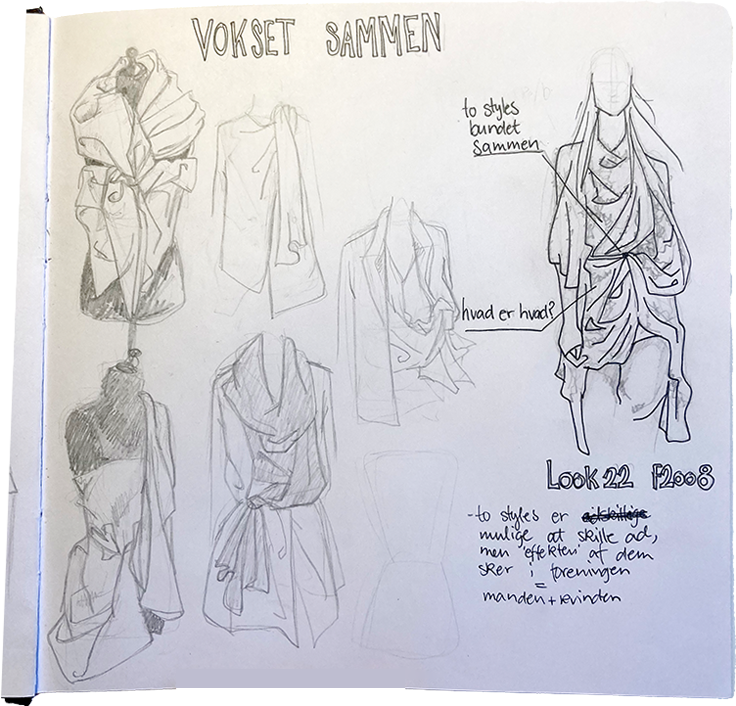 VOKSET SAMMEN
to styles
bundet
sammen
hvad er hvad?
LOOK 22 F2008
-to styles er adskillige
mulige at skille ad,
men 'effekten' af dem
sker i foreningen
=
manden + kvinden